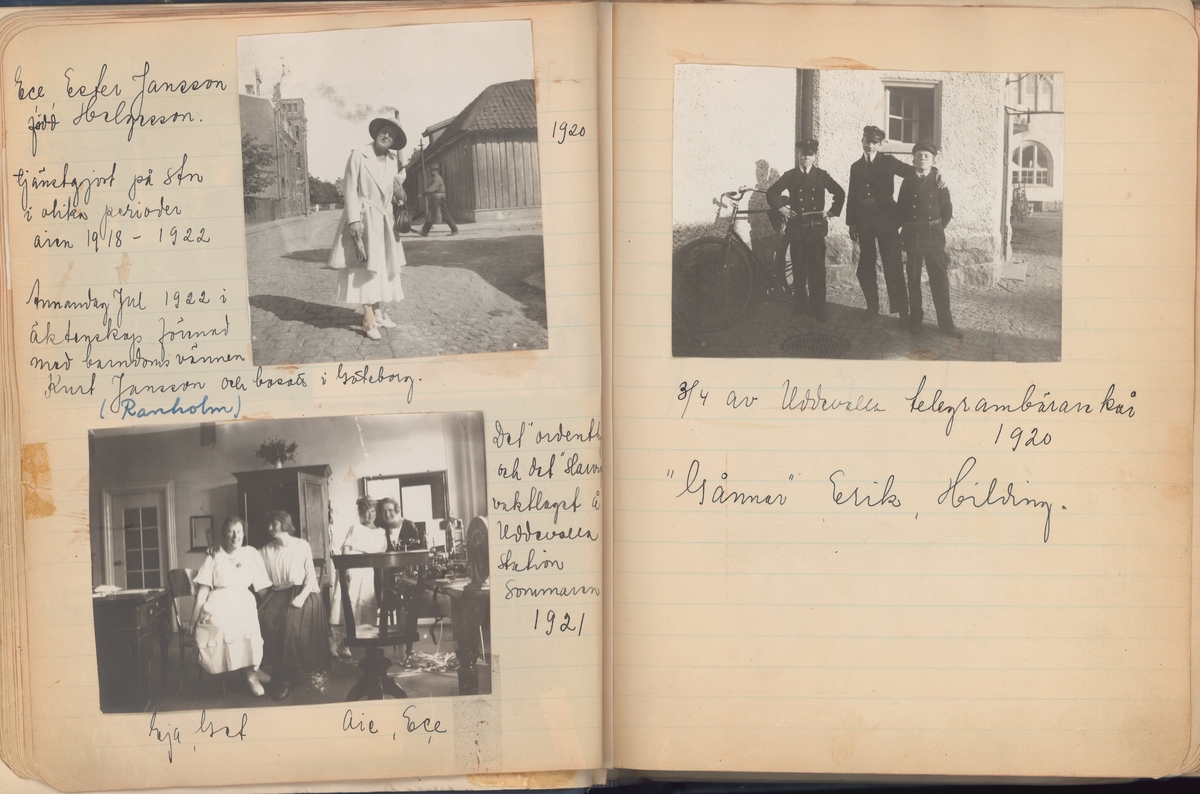 Ece Ester Jansson
född Helgesson.
tjänstgjort på Stn
i olika perioder
åren 1918 - 1922
Annandag Jul 1922 i
äktenskap förenad
med barndomsvännen
Kurt Jansson och bosatt i Göteborg.
(Ranholm)
1920
Det "ordentl
och det "slarv
vaktlaget å
Uddevalla
Station
Sommaren
1921
Eja, Gret
Aie, Ece
3/4 av Uddevalla telegrambärarekår
1920
"Gånner" Erik, Hilding.